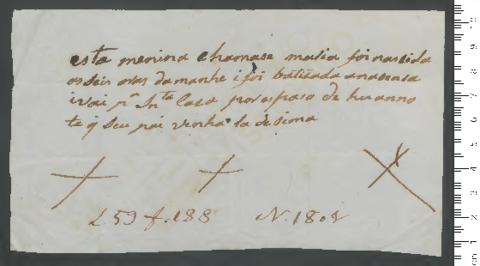 esta menina chamase maria foi nascida
as seis oras da manhe i foi batizada
i vai pª Snta Caza por espaso de hu anno
te q seu pai venha la de sima
L 59 f. 188 N. 1808